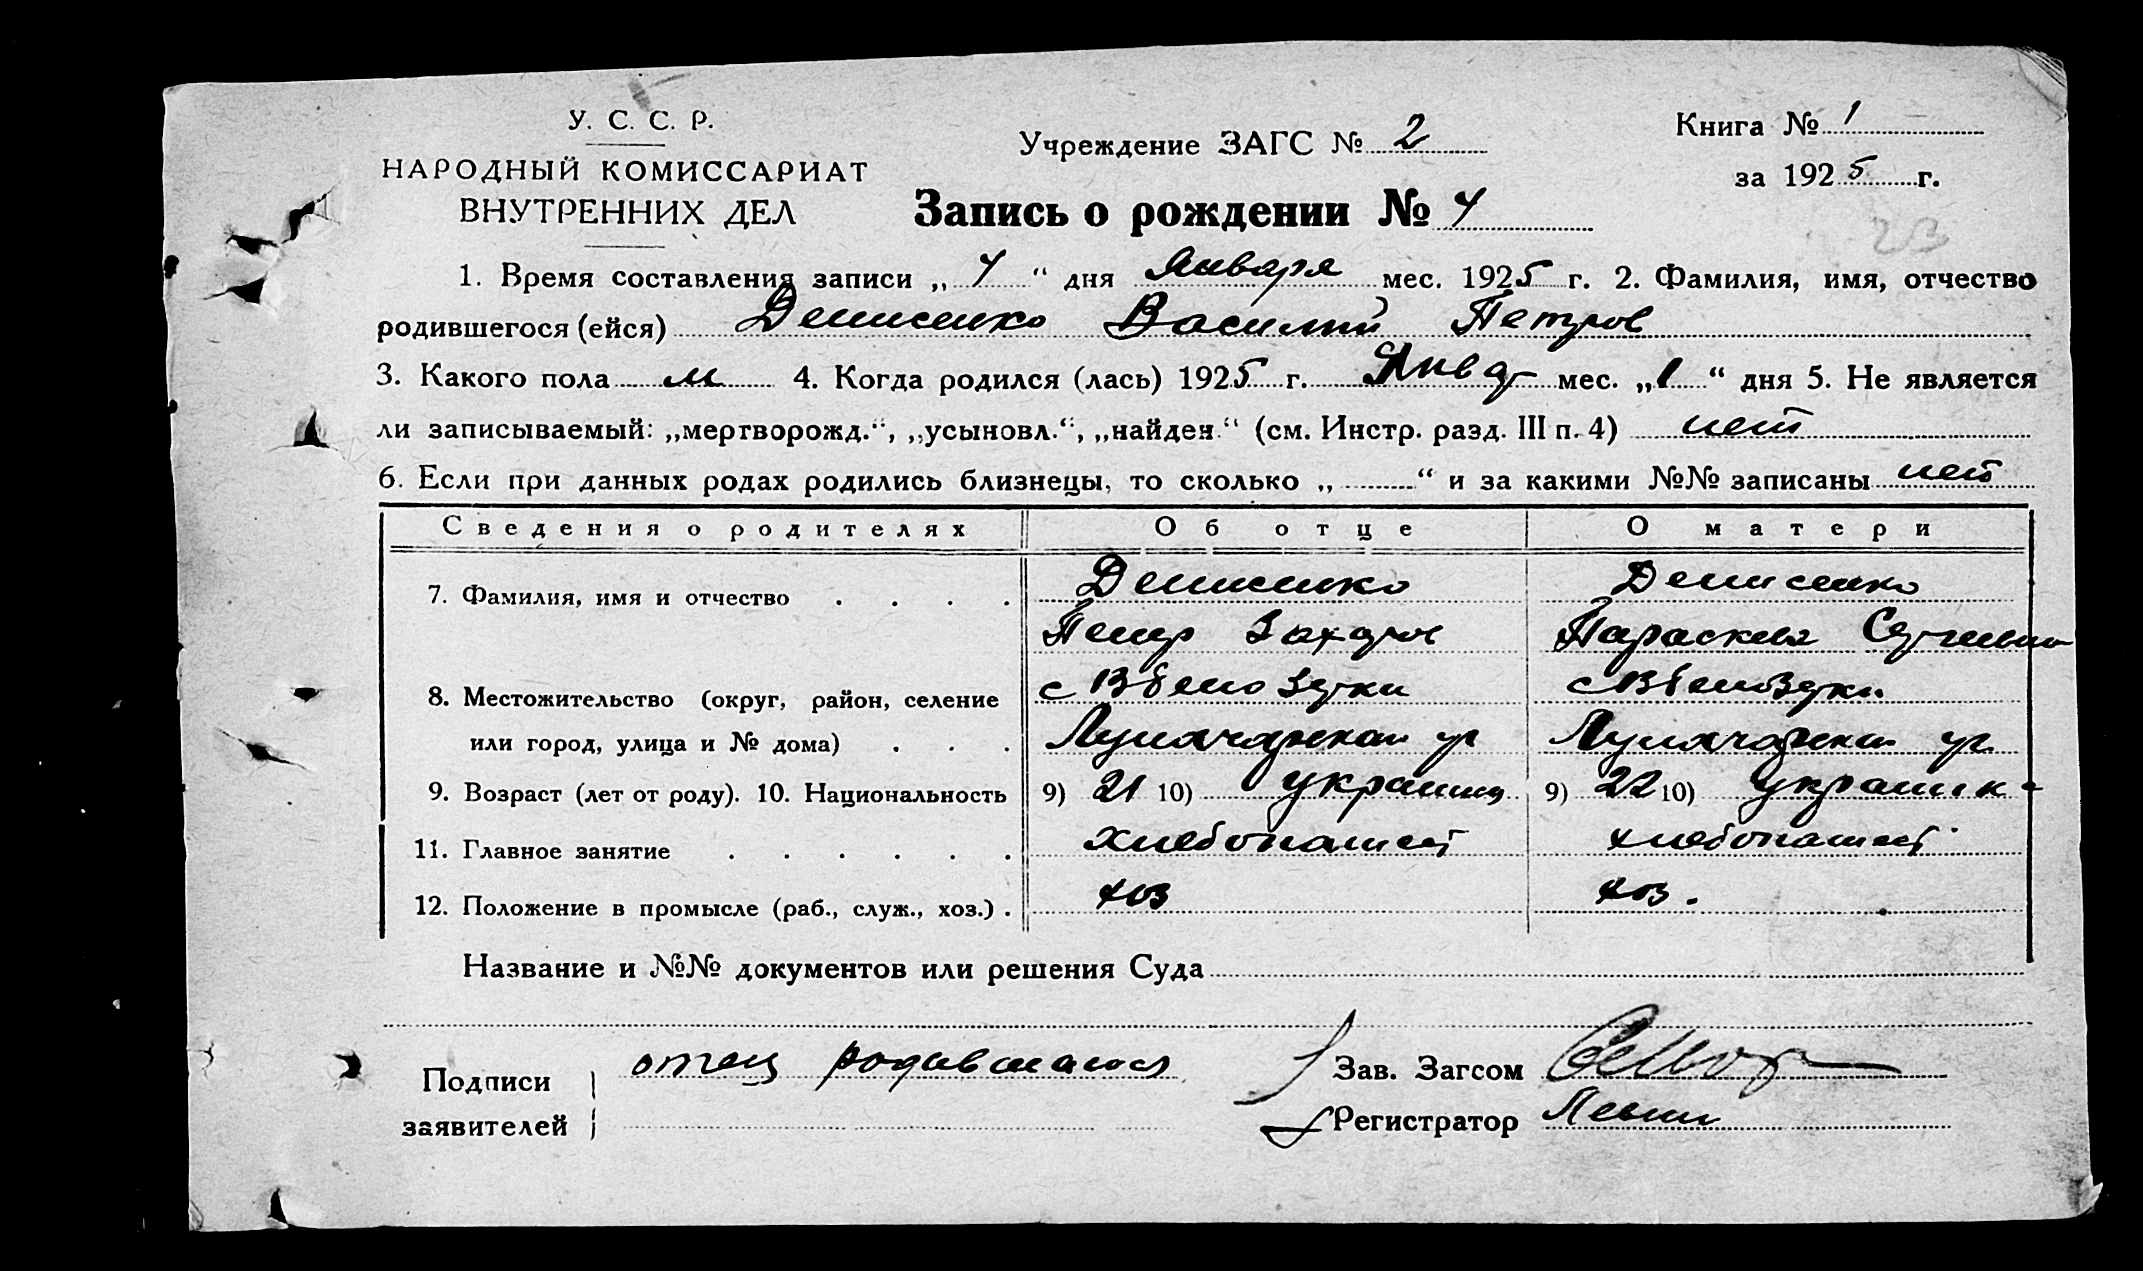 У. С. С. Р.
НАРОДНЫЙ КОМИССАРИАТ
ВНУТРЕННИХ ДЕЛ
Учреждение ЗАГС № 2
Книга № 1
за 1925 г.
Запись о рождении № 4
23
1. Время составления записи „4“ дня Января мес. 1925 г. 2. Фамилия, имя, отчество
родившегося (ейся) Денисенко Василий Петров
3. Какого пола м 4. Когда родился (лась) 1925 г. Январ мес. „1“ дня 5. Не является
ли записываемый: „мертворожд.“, „усыновл.“, „найден.“ (см. Инстр. разд. III п. 4) нет
6. Если при данных родах родились близнецы, то сколько „ “ и за какими №№ записаны нет
Сведения о родителях Об отце О матери
7. Фамилия, имя и отчество Денисенко Денисенко
Петр Захаров Параскева
8. Местожительство (округ, район, селение с с
или город, улица и № дома)
9. Возраст (лет от роду). 10. Национальность 9) 21 10) украинец 9) 22 10) украинка
11. Главное занятие хлебопашест хлебопашест
12. Положение в промысле (раб., служ., хоз.) хоз хоз.
Название и №№ документов или решения Суда
Подписи отец родившагося Зав. Загсом
заявителей Регистратор